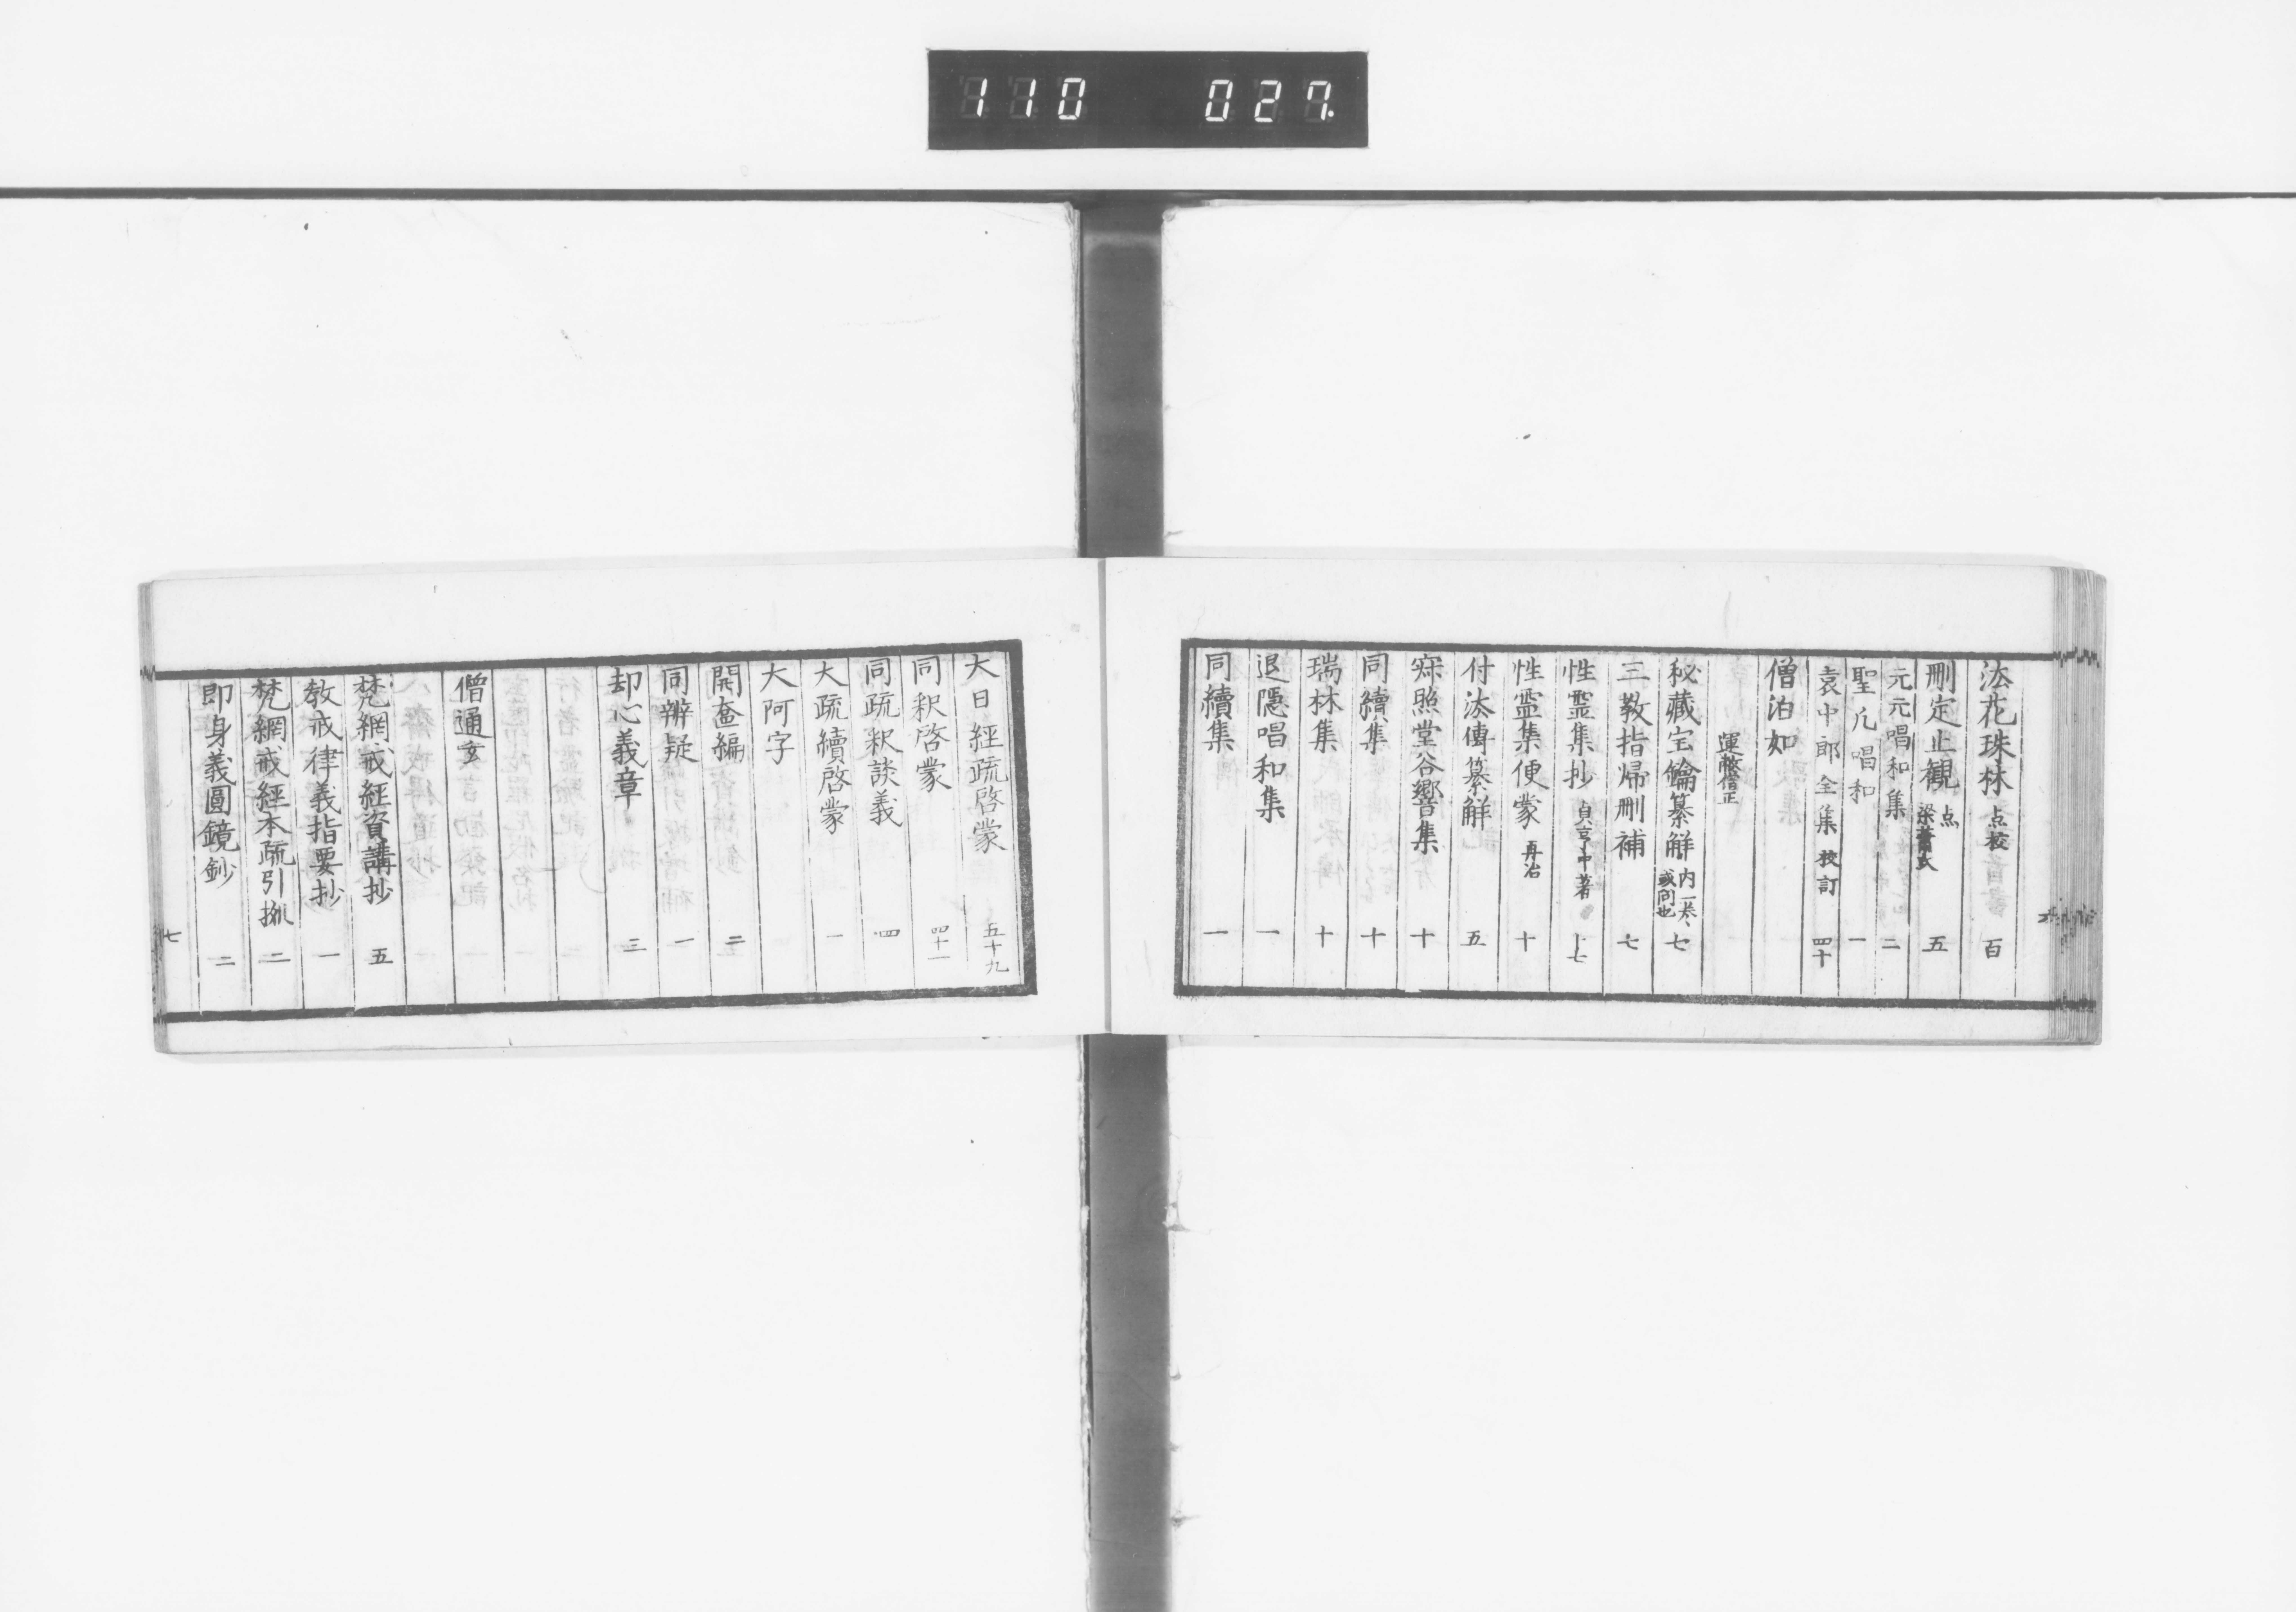 110 027.
法花珠林 点校 百
删定止観 点 梁蕭氏 五
元元唱和集 二
聖凡唱和 一
袁中郎全集 校訂 四十
僧泊如
運敞僧正
秘藏宝鑰纂解 内一巻、或問也 七
三教指帰删補 七
性霊集抄 貞享中著 十七
性霊集便蒙 再治 十
付法傳纂解 五
寂照堂谷響集 十
同續集 十
瑞林集 十
退隱唱和集 一
同續集 一
大日經疏啓蒙 五十九
同釈啓蒙 四十一
同疏釈談義 四
大疏續啓蒙 一
大阿字
開奩編 二
同辨疑 一
却心義章 三
僧通玄
梵網戒經資講抄 五
教戒律義指要抄 一
梵網戒經本疏引拠 二
即身義圓鏡鈔 二
七